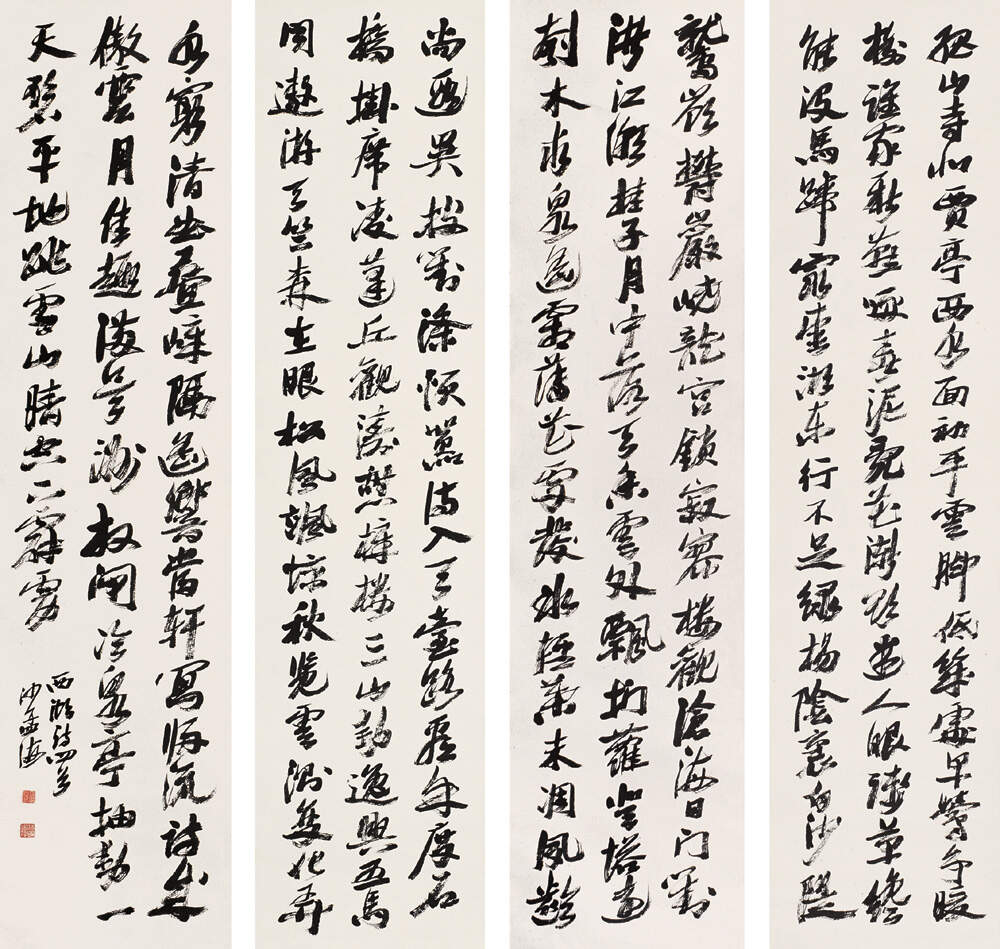 孤山寺北賈亭西水面初平雲腳低幾處早鶯爭暖
樹誰家新燕啄春泥亂花漸欲迷人眼淺草纔
能沒馬蹄最愛湖東行不足綠楊陰裏白沙隄
鷲嶺鬱巖嶢龍宮鎖寂寥樓觀滄海日門對
浙江潮桂子月中落天香雲外飄捫蘿登塔遠
刳木取泉遙霜薄花更發冰輕葉未凋夙齡
尚遐異披對滌煩囂待入天臺路看余度石
橋掛席凌蓬丘觀濤憩樟樓三山動逸興五馬
同遨遊天竺森在眼松風颯驚秋覽雲測變化弄
水窮清幽疊嶂隔遙海當軒寫歸流詩成
傲雲月佳趣滿吳洲放閘冷泉亭抽動一
天碧平地跳雪山晴空下霹靂
西湖詩四首
沙孟海